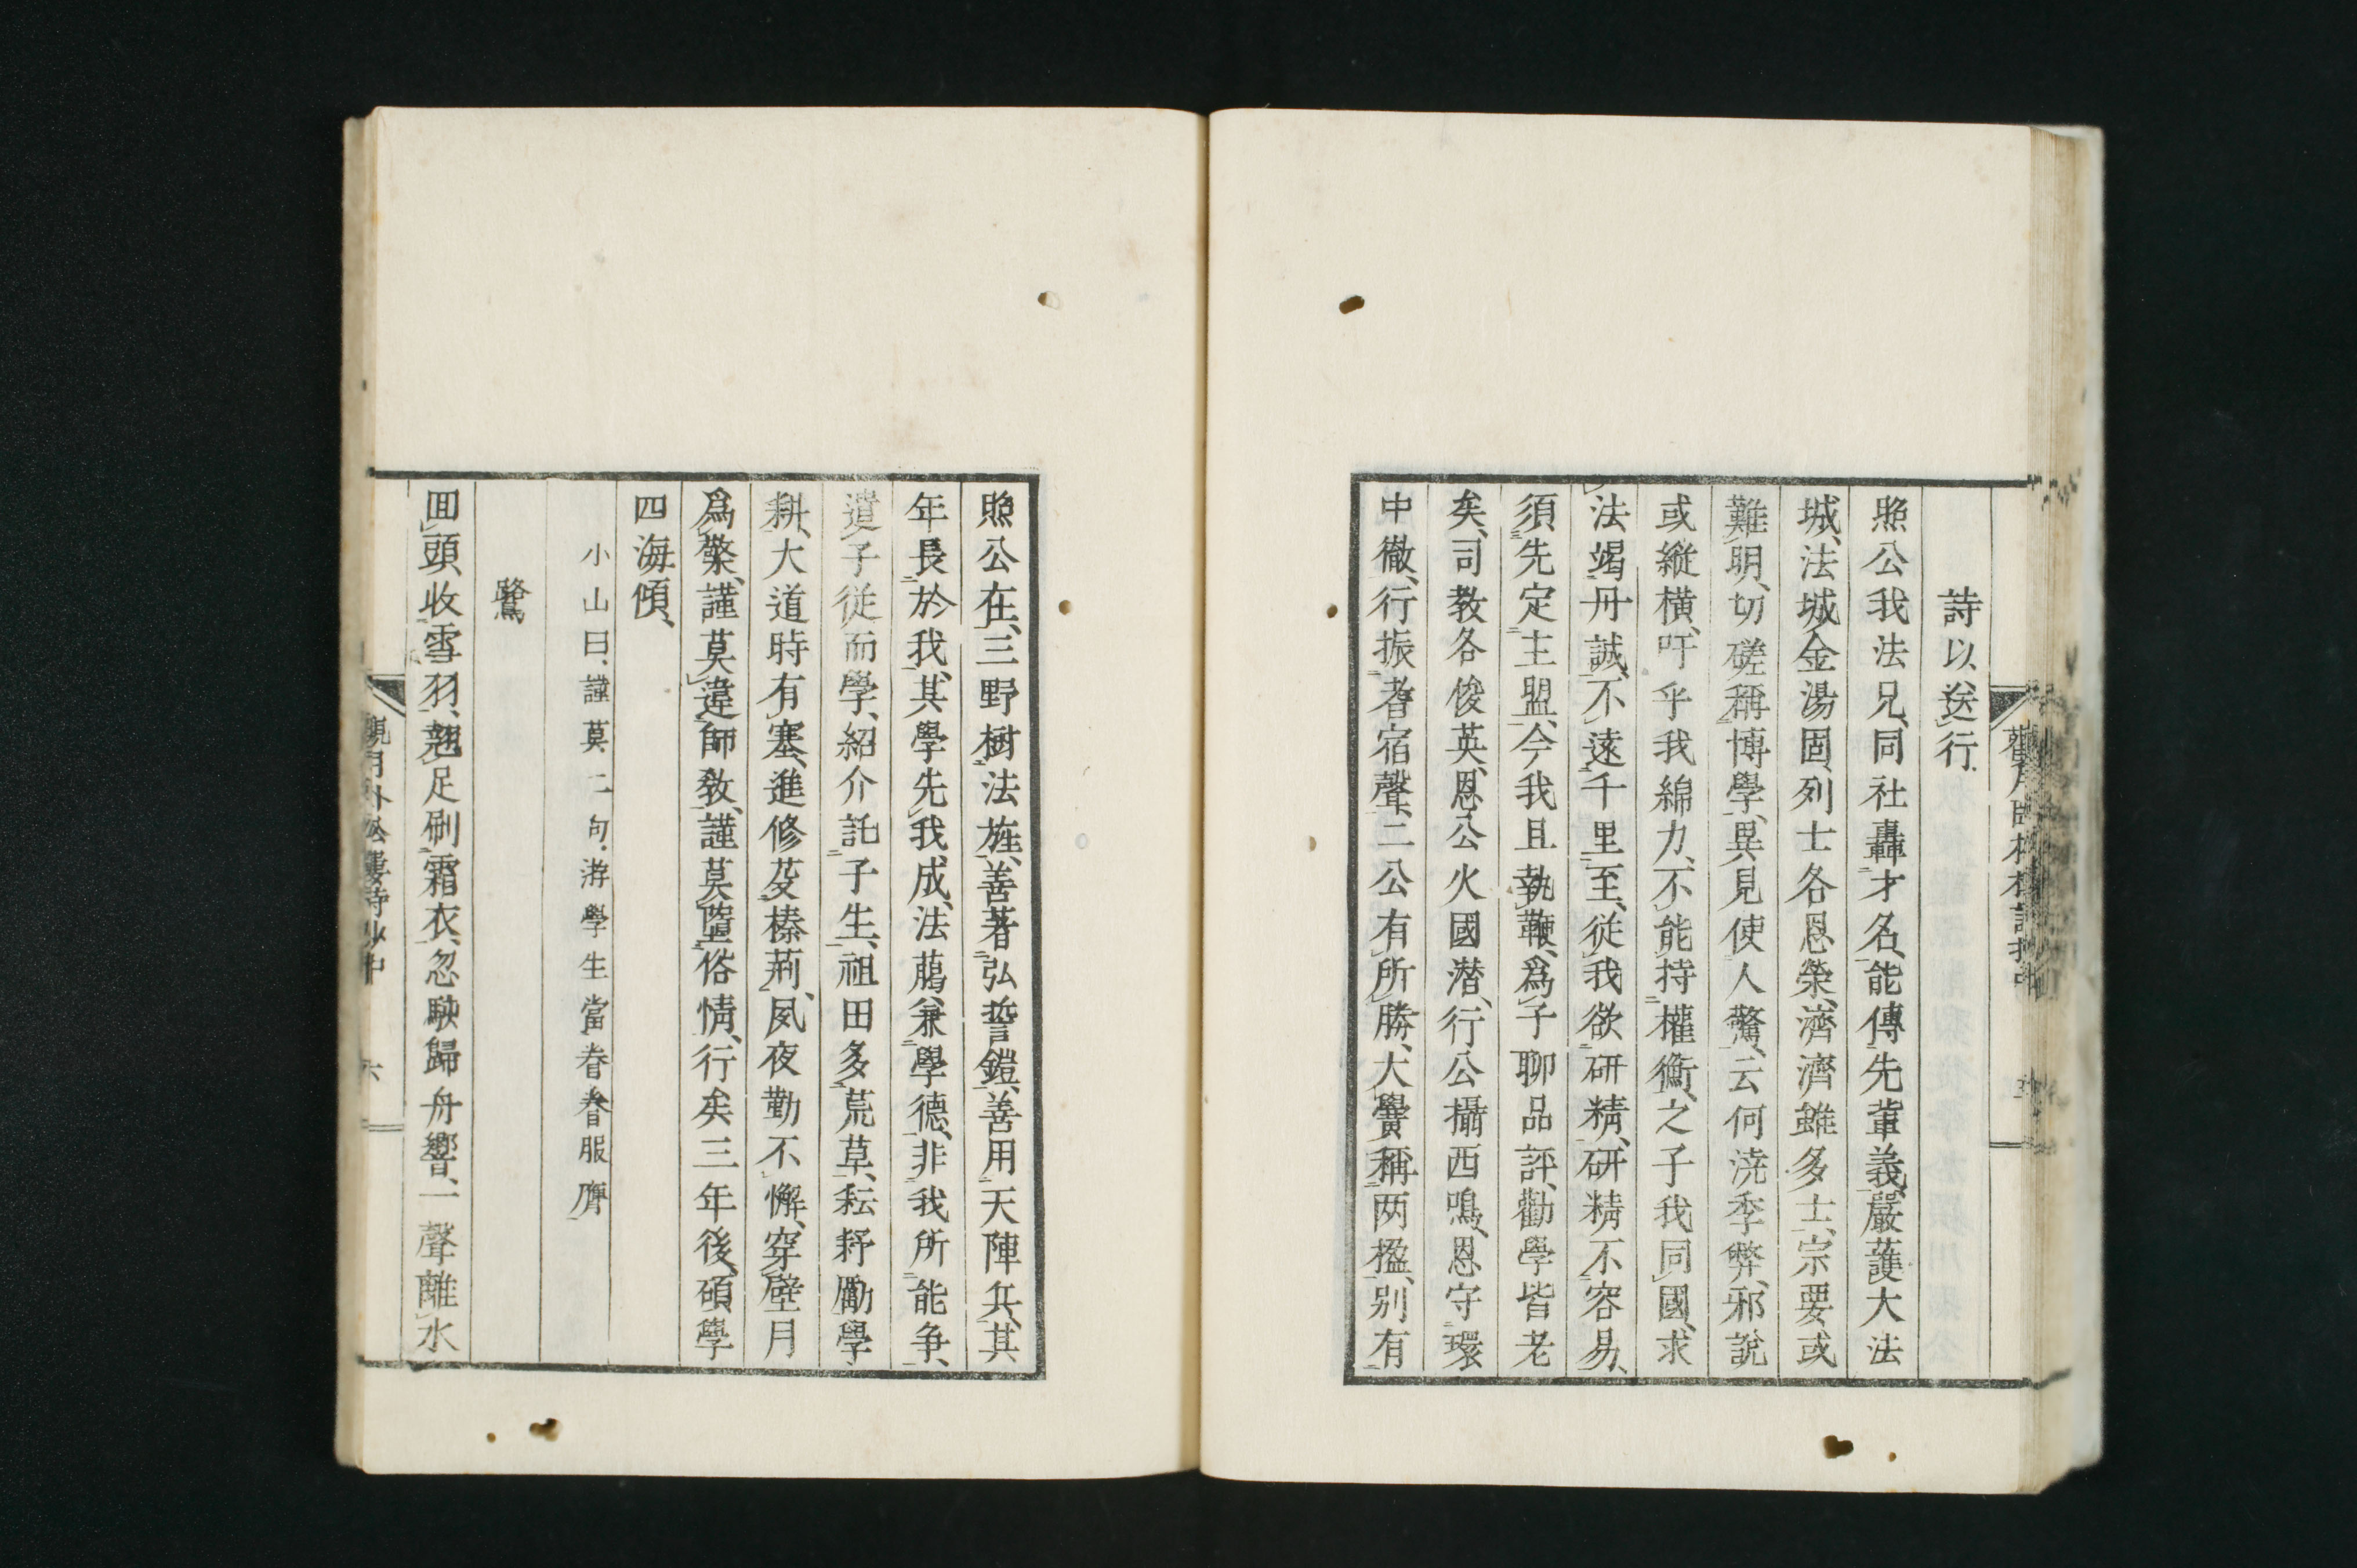 詩以送行
照公我法兄、同社轟才名、能傳先輩義、嚴護大法
城、法城金湯固、列士各恩榮、濟濟雖多士、宗要或
難明、切磋稱博學、異見使人驚、云何澆季弊、邪說
或縱橫、吁乎我綿力、不能持權衡、之子我同國、求
法竭丹誠、不遠千里至、從我欲研精、研精不容易、
須先定主盟、今我且執鞭、爲子聊品評、勸學皆老
矣、司教各俊英、恩公火國潜、行公攝西鳴、恩守環
中徹、行振耆宿聲、二公有所勝、大黌稱兩楹、別有
照公在、三野樹法旌、善著弘誓鎧、善用天陣兵、其
年長於我、其學先我成、法﨟兼學德、非我所能争、
遣子從而學、紹介託子生、祖田多荒草、耘耔勵學
耕、大道時有塞、進修芟榛荊、夙夜勤不懈、穿壁月
爲檠、謹莫違師敎、謹莫墮俗情、行矣三年後、碩學
四海傾、
小山曰、謹莫二句、游學生當眷眷服膺
鷺
囬頭收雪羽、翹足刷霜衣、忽駛歸舟響、一聲離水
六